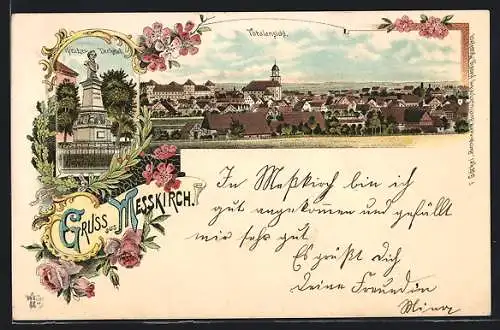 Totalansicht.
Denkmal
GRUSS aus MESSKIRCH.
In Meßkirch bin ich
gut angekommen und gefällt
mir sehr gut.
Es grüßt dich
deine Freundin